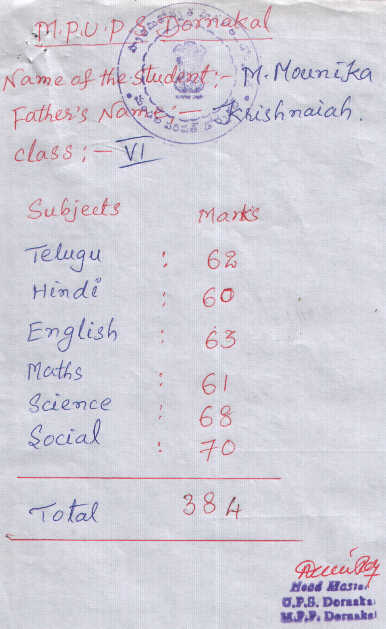 M.P.U.P.S. Dornakal
Name of the Student :- M. Mounika
Father's Name :- Krishnaiah.
class :- VI
Subjects Marks
Telugu : 62
Hindi : 60
English : 63
Maths : 61
Science : 68
Social : 70
Total 384
Head Master
U.P.S. Dornakal
M.P.P. Dornakal